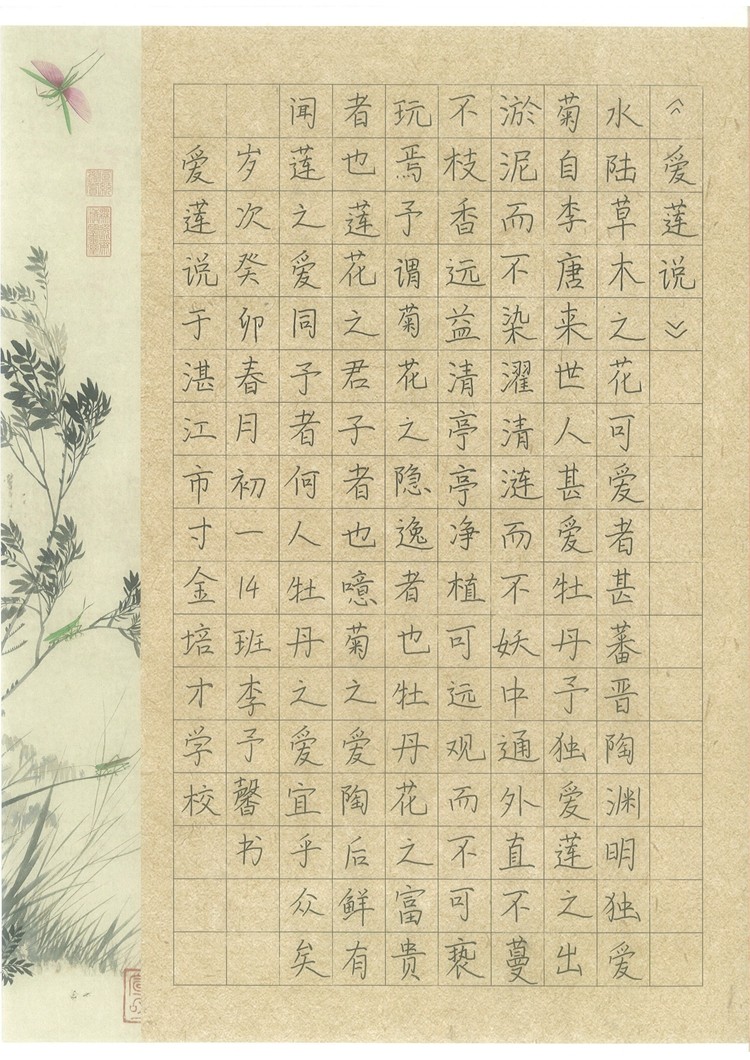 《爱莲说》
水陆草木之花可爱者甚蕃晋陶渊明独爱
菊自李唐来世人甚爱牡丹予独爱莲之出
淤泥而不染濯清涟而不妖中通外直不蔓
不枝香远益清亭亭净植可远观而不可亵
玩焉予谓菊花之隐逸者也牡丹花之富贵
者也莲花之君子者也噫菊之爱陶后鲜有
闻莲之爱同予者何人牡丹之爱宜乎众矣
岁次癸卯春月初一14班李予馨书
爱莲说于湛江市寸金培才学校